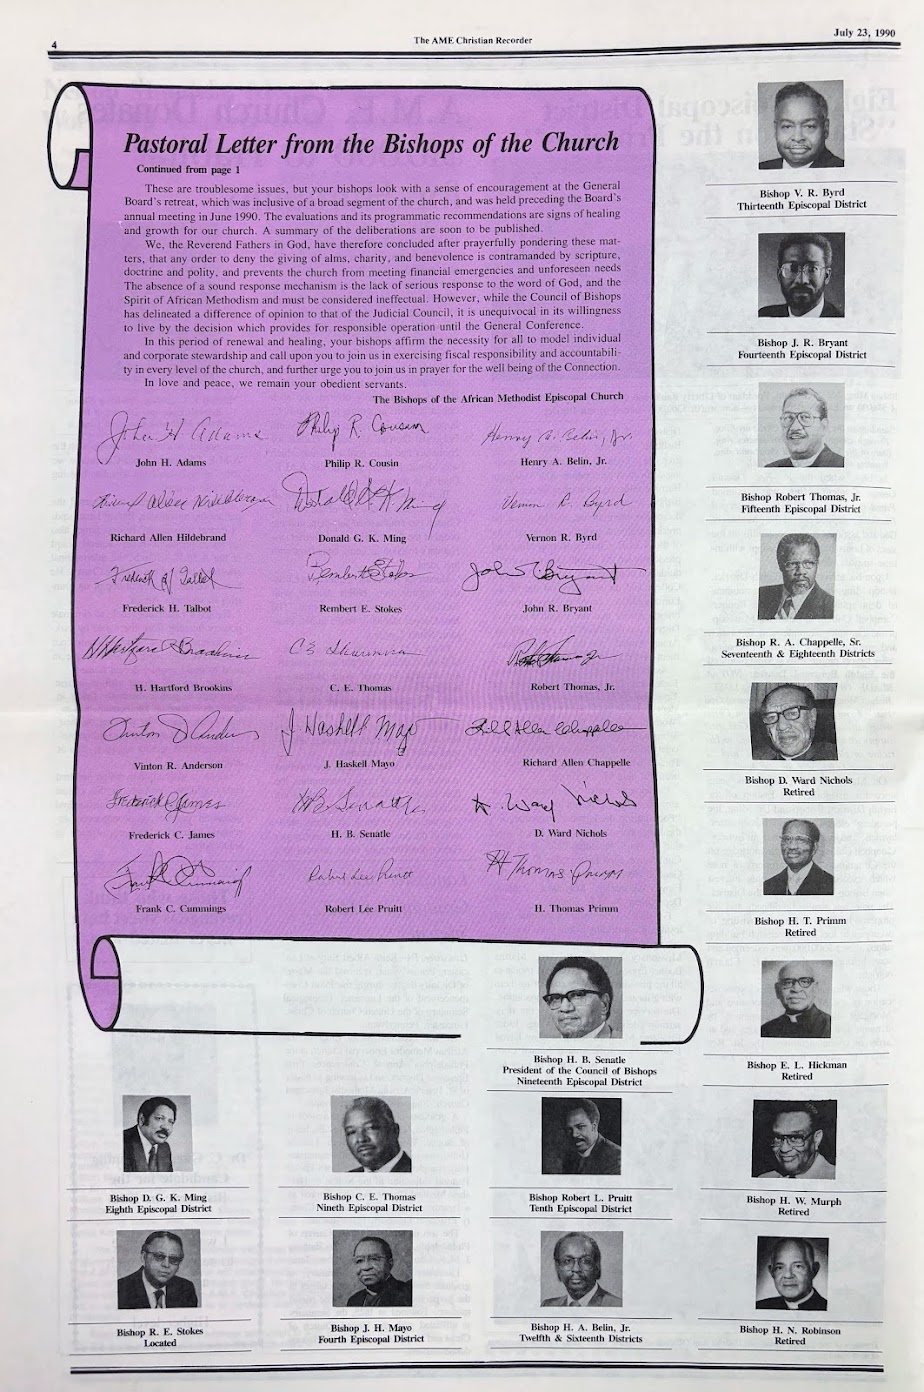 4
The AME Christian Recorder
July 23, 1990
Pastoral Letter from the Bishops of the Church
Continued from page 1
These are troublesome issues, but your bishops look with a sense of encouragement at the General
Board's retreat, which was inclusive of a broad segment of the church, and was held preceding the Board's
annual meeting in June 1990. The evaluations and its programmatic recommendations are signs of healing
and growth for our church. A summary of the deliberations are soon to be published.
We, the Reverend Fathers in God, have therefore concluded after prayerfully pondering these mat-
ters, that any order to deny the giving of alms, charity, and benevolence is contramanded by scripture,
doctrine and polity, and prevents the church from meeting financial emergencies and unforeseen needs
The absence of a sound response mechanism is the lack of serious response to the word of God, and the
Spirit of African Methodism and must be considered ineffectual. However, while the Council of Bishops
has delineated a difference of opinion to that of the Judicial Council, it is unequivocal in its willingness
to live by the decision which provides for responsible operation until the General Conference.
In this period of renewal and healing, your bishops affirm the necessity for all to model individual
and corporate stewardship and call upon you to join us in exercising fiscal responsibility and accountabili-
ty in every level of the church, and further urge you to join us in prayer for the well being of the Connection.
In love and peace, we remain your obedient servants.
The Bishops of the African Methodist Episcopal Church
John H Adams Philip R. Cousin Henry A. Belin, Jr.
John H. Adams Philip R. Cousin Henry A. Belin, Jr.
Richard Allen Hildebrand Donald G. K. Ming Vernon R. Byrd
Richard Allen Hildebrand Donald G. K. Ming Vernon R. Byrd
Frederick H Talbot Rembert E Stokes John R Bryant
Frederick H. Talbot Rembert E. Stokes John R. Bryant
H Hartford Brookins C E Thomas Robert Thomas Jr
H. Hartford Brookins C. E. Thomas Robert Thomas, Jr.
Vinton R Anderson J. Haskell Mayo Richard Allen Chappelle
Vinton R. Anderson J. Haskell Mayo Richard Allen Chappelle
Frederick C James H B Senatle D. Ward Nichols
Frederick C. James H. B. Senatle D. Ward Nichols
Frank C Cummings Robert Lee Pruitt H Thomas Primm
Frank C. Cummings Robert Lee Pruitt H. Thomas Primm
Bishop V. R. Byrd
Thirteenth Episcopal District
Bishop J. R. Bryant
Fourteenth Episcopal District
Bishop Robert Thomas, Jr.
Fifteenth Episcopal District
Bishop R. A. Chappelle, Sr.
Seventeenth & Eighteenth Districts
Bishop D. Ward Nichols
Retired
Bishop H. T. Primm
Retired
Bishop E. L. Hickman
Retired
Bishop H. B. Senatle
President of the Council of Bishops
Nineteenth Episcopal District
Bishop D. G. K. Ming
Eighth Episcopal District
Bishop C. E. Thomas
Nineth Episcopal District
Bishop Robert L. Pruitt
Tenth Episcopal District
Bishop H. W. Murph
Retired
Bishop R. E. Stokes
Located
Bishop J. H. Mayo
Fourth Episcopal District
Bishop H. A. Belin, Jr.
Twelfth & Sixteenth Districts
Bishop H. N. Robinson
Retired